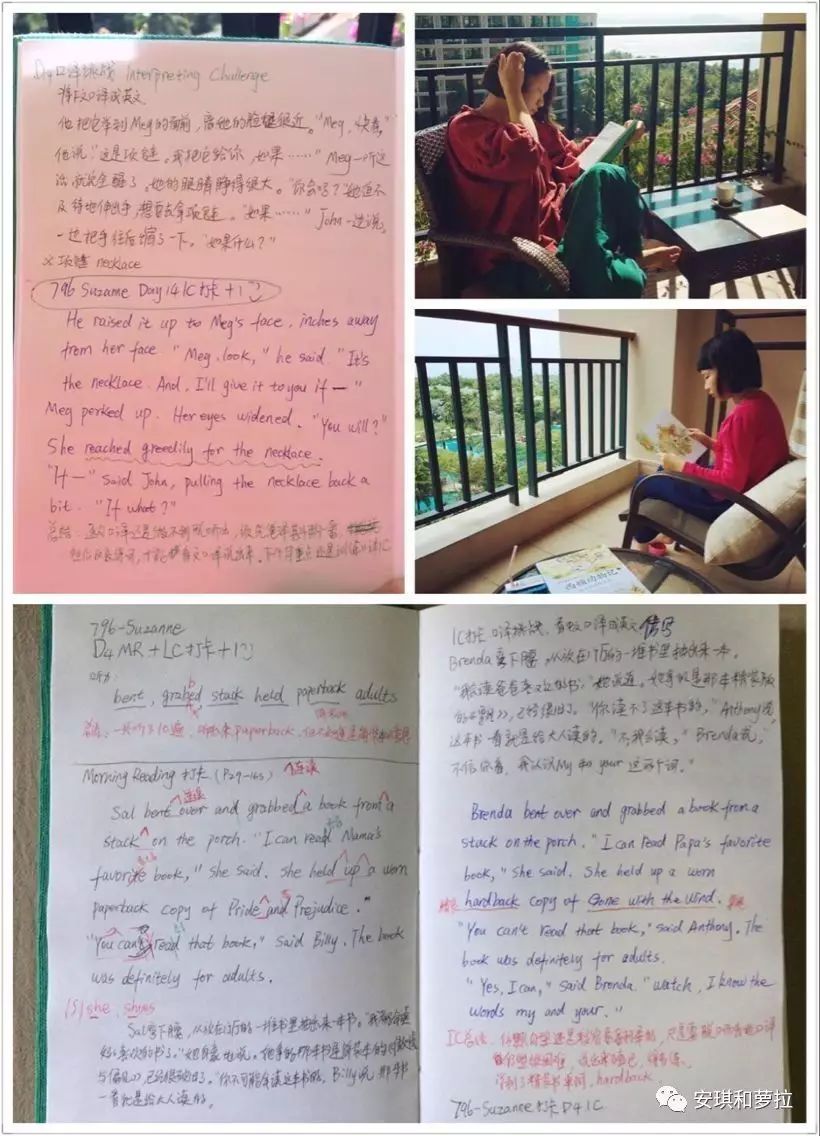 D4口译挑战 Interpreting Challenge
将下文口译成英文
他把它举到Meg的面前，离她的脸庞很近。"Meg，快看，"
他说，"这是项链。我把它给你，如果……" Meg一听这
话，就完全醒了。她的眼睛睁得很大。"你会吗？"她迫不
及待地伸出手，想要去拿项链。"如果……" John一边说，
一边把手往后缩了一下。"如果什么？"
※ 项链 necklace
796 Suzanne Day14 IC打卡+1
He raised it up to Meg's face, inches away
from her face. "Meg, look," he said. "It's
the necklace. And, I'll give it to you if —"
Meg perked up. Her eyes widened. "You will?"
She reached greedily for the necklace.
"If —" said John, pulling the necklace back a
bit. "If what?"
总结：
西顿动物记
796-Suzanne
D4 MR + LC打卡+1
听力：
bent, grabbed stack held paperback adults
总结：一共听了10遍，听出来paperback，但不知道是
Morning Reading 打卡 (P29-16s) 连读
连读
Sal bent over and grabbed a book from a
stack on the porch. "I can read Mama's
favorite book," she said. She held up a worn
paperback copy of Pride and Prejudice."
"You can't read that book," said Billy. The book
was definitely for adults.
[ʃ] she, shies
Sal弯下腰，从放在门厅的一堆书里抽出来一本书。"我
喜欢的书了。"她自豪地说。她拿的那本书是简装本的《傲慢
与偏见》，已经很破旧了。"你不可能会读这本书的，Billy说，那本书
一看就是给大人读的。
IC打卡 口译挑战，看中文口译成英文
Brenda弯下腰，从放在门厅的一堆书里抽出来一本。
"我能读爸爸喜欢的书，"她说道。她拿的是那本精装版
的《飘》，已经很旧了。"你读不了这本书的，"Anthony说，
这本书一看就是给大人读的。"不，我会读，"Brenda说，
不信你看，我认识my和your这两个词。"
Brenda bent over and grabbed a book from a
stack on the porch. "I can read Papa's favorite
book," she said. She held up a worn
hardback copy of Gone with the Wind.
"You can't read that book," said Anthony. The
book was definitely for adults.
"Yes, I can," said Brenda. "watch, I know the
words my and your."
IC总结：
学到了精装书单词，hardback
796-Suzanne 打卡 D4 IC
安琪和萝拉